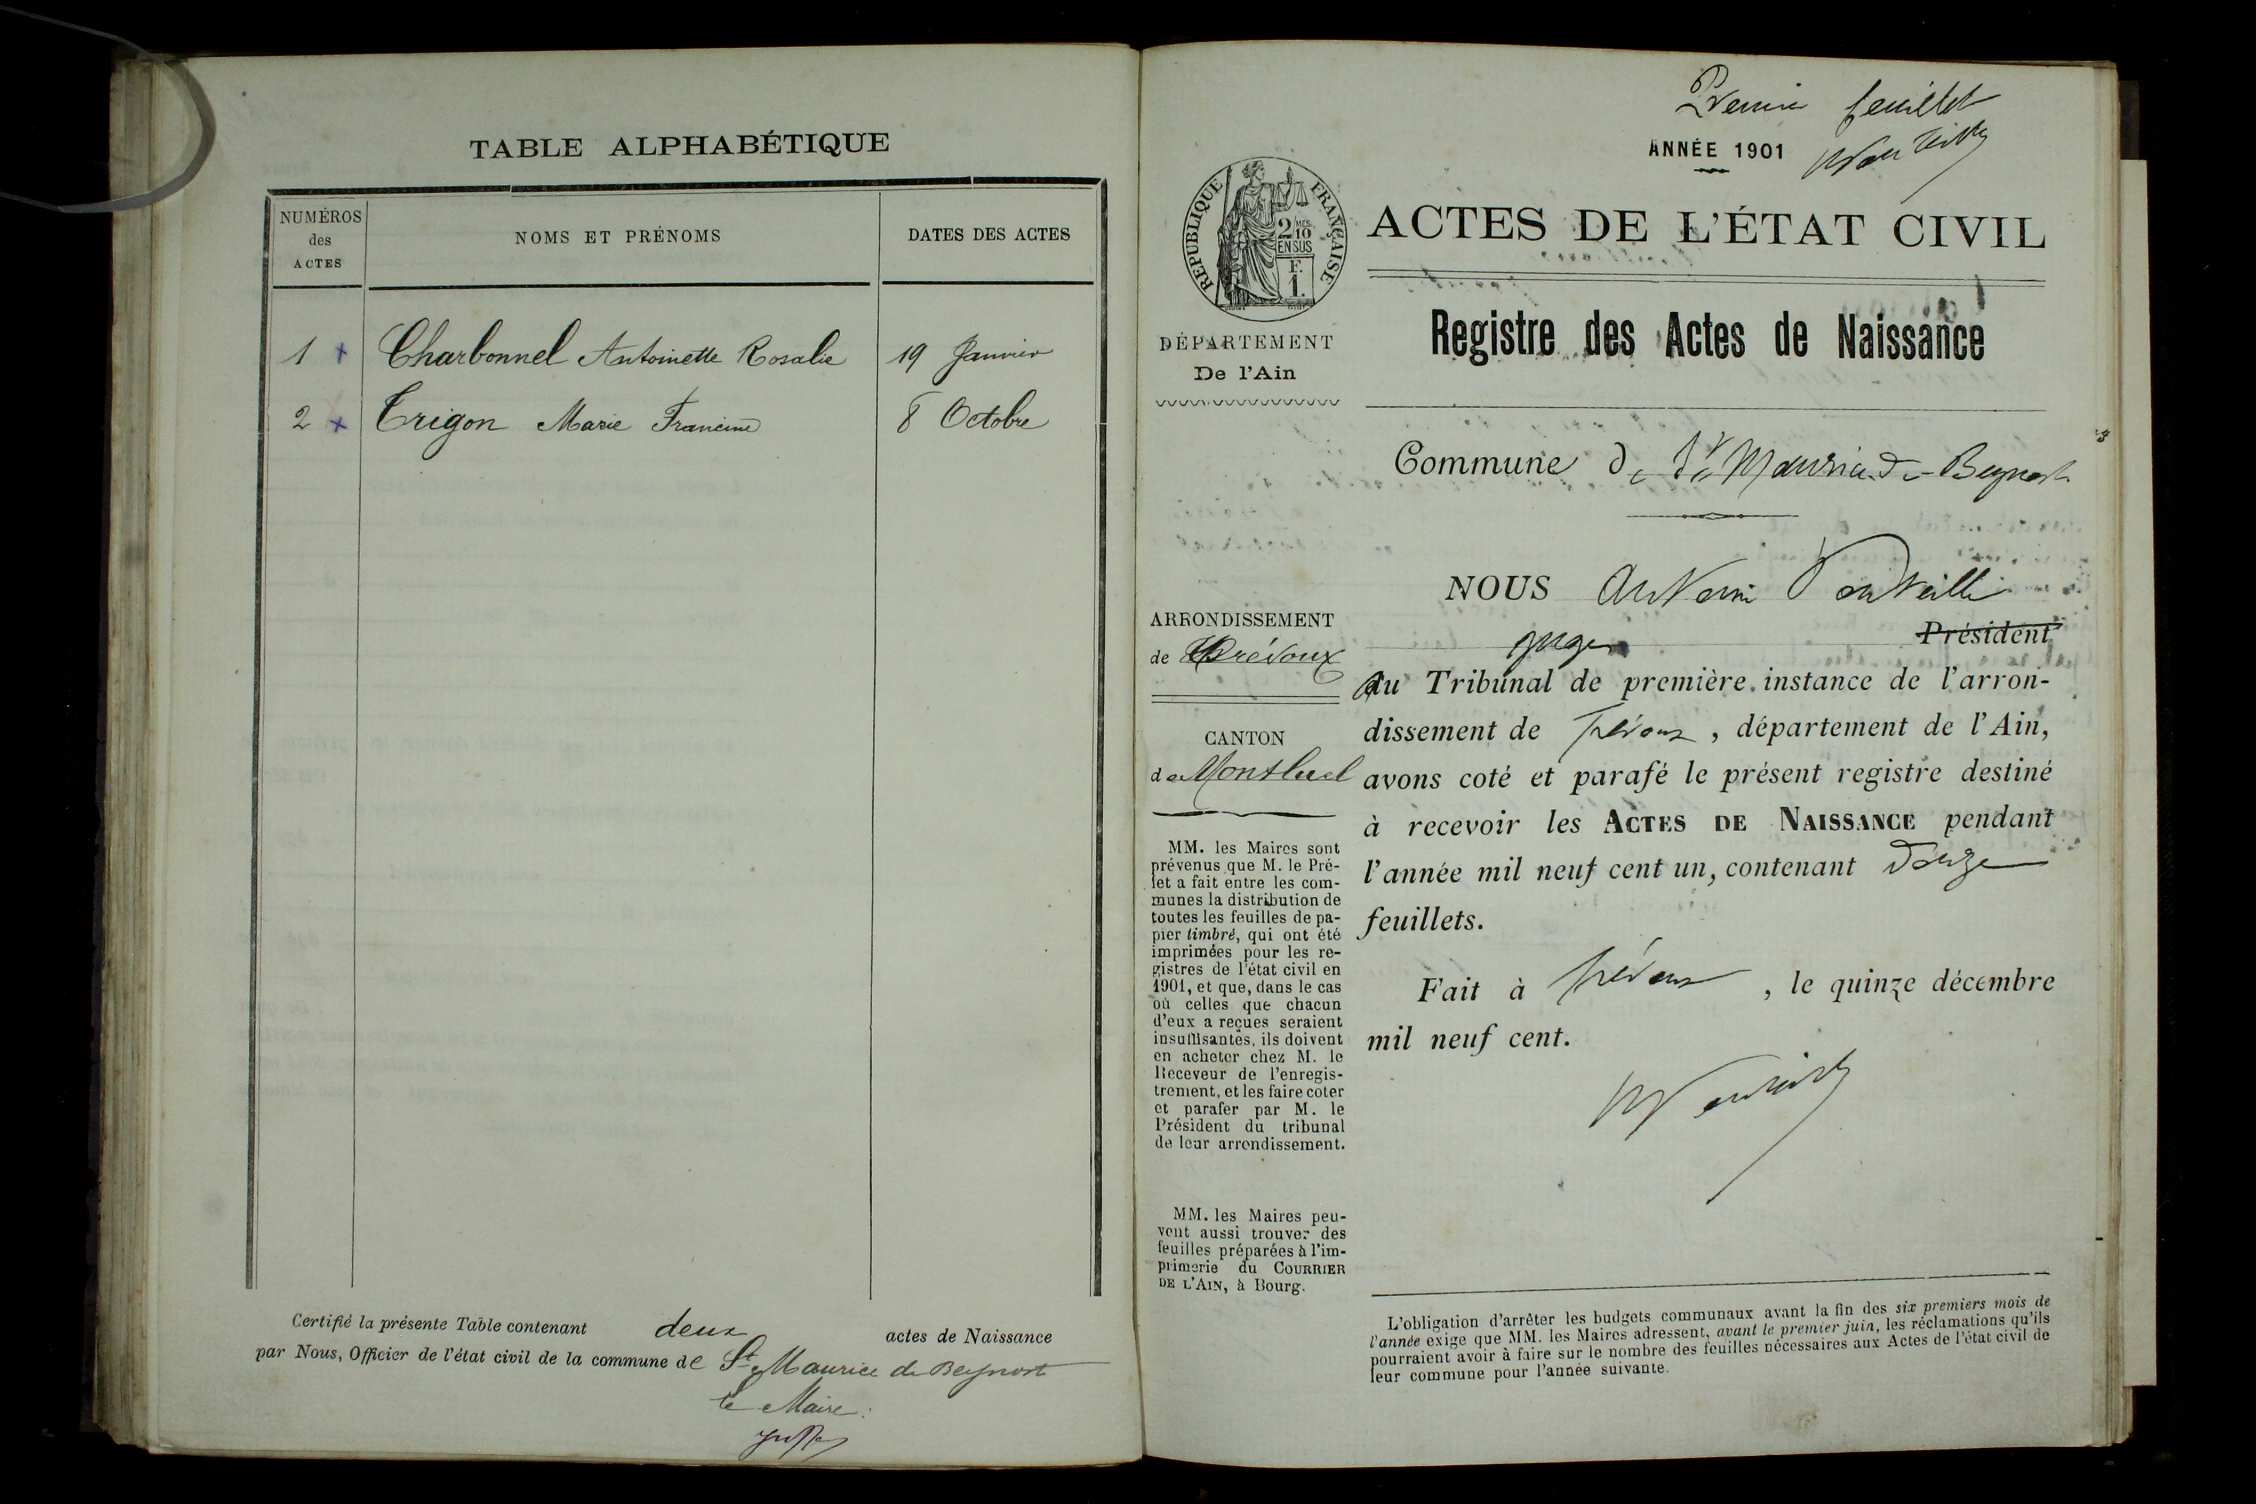 TABLE ALPHABÉTIQUE
NUMÉROS
des
ACTES
NOMS ET PRÉNOMS
DATES DES ACTES
1 + Charbonnel Antoinette Rosalie 19 Janvier
2 + Trigon Marie Francine 8 Octobre
Certifié la présente Table contenant deux actes de Naissance
par Nous, Officier de l'état civil de la commune de St Maurice de Beynost
Le Maire:
Premier feuillet
ANNÉE 1901
RÉPUBLIQUE FRANÇAISE
2 MES
10
EN SUS
F.
1.
ACTES DE L'ÉTAT CIVIL
Registre des Actes de Naissance
DÉPARTEMENT
De l'Ain
Commune de St Maurice-de-Beynost
ARRONDISSEMENT
de Trévoux
CANTON
de Montluel
MM. les Maires sont
prévenus que M. le Pré-
fet a fait entre les com-
munes la distribution de
toutes les feuilles de pa-
pier timbré, qui ont été
imprimées pour les re-
gistres de l'état civil en
1901, et que, dans le cas
où celles que chacun
d'eux a reçues seraient
insuffisantes, ils doivent
en acheter chez M. le
Receveur de l'enregis-
trement, et les faire coter
et parafer par M. le
Président du tribunal
de leur arrondissement.
MM. les Maires peu-
vent aussi trouver des
feuilles préparées à l'im-
primerie du COURRIER
DE L'AIN, à Bourg.
NOUS Antonin
juge Président
au Tribunal de première instance de l'arron-
dissement de Trévoux, département de l'Ain,
avons coté et parafé le présent registre destiné
à recevoir les ACTES DE NAISSANCE pendant
l'année mil neuf cent un, contenant douze
feuillets.
Fait à Trévoux, le quinze décembre
mil neuf cent.
L'obligation d'arrêter les budgets communaux avant la fin des six premiers mois de
l'année exige que MM. les Maires adressent, avant le premier juin, les réclamations qu'ils
pourraient avoir à faire sur le nombre des feuilles nécessaires aux Actes de l'état civil de
leur commune pour l'année suivante.